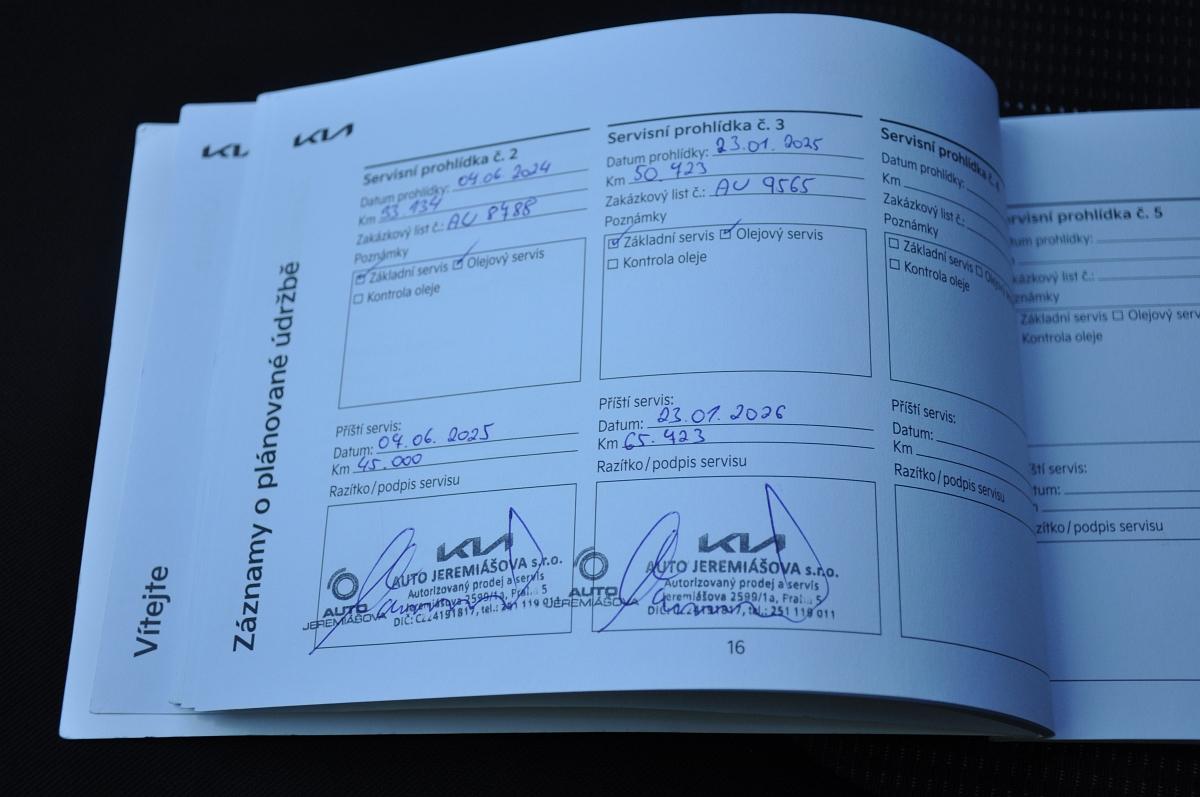 KIA
Servisní prohlídka č. 2
Datum prohlídky: 04.06. 2024
Km 33 134
Zakázkový list č.: AU 8488
Poznámky
Základní servis Olejový servis
Kontrola oleje
Příští servis:
Datum: 04.06. 2025
Km 45.000
Razítko/podpis servisu
KIA
AUTO JEREMIÁŠOVA s.r.o.
Autorizovaný prodej a servis
Jeremiášova 2599/1a, 5
tel.: 251 119 011
AUTO
JEREMIÁŠOVA
Servisní prohlídka č. 3
Datum prohlídky: 23.01. 2025
Km 50.423
Zakázkový list č.: AU 9565
Poznámky
Základní servis Olejový servis
Kontrola oleje
Příští servis:
Datum: 23.01. 2026
Km 65.423
Razítko/podpis servisu
KIA
AUTO JEREMIÁŠOVA s.r.o.
Autorizovaný prodej a servis
Jeremiášova 2599/1a, 5
tel.: 251 119 011
AUTO
JEREMIÁŠOVA
Servisní prohlídka č. 4
Datum prohlídky:
Km
Zakázkový list č.:
Poznámky
Základní servis
Kontrola oleje
Příští servis:
Datum:
Km
Razítko/podpis servisu
rvisní prohlídka č. 5
tum prohlídky:
kázkový list č.:
známky
Základní servis Olejový serv
Kontrola oleje
ští servis:
tum:
zítko/podpis servisu
16
Záznamy o plánované údržbě
Vítejte